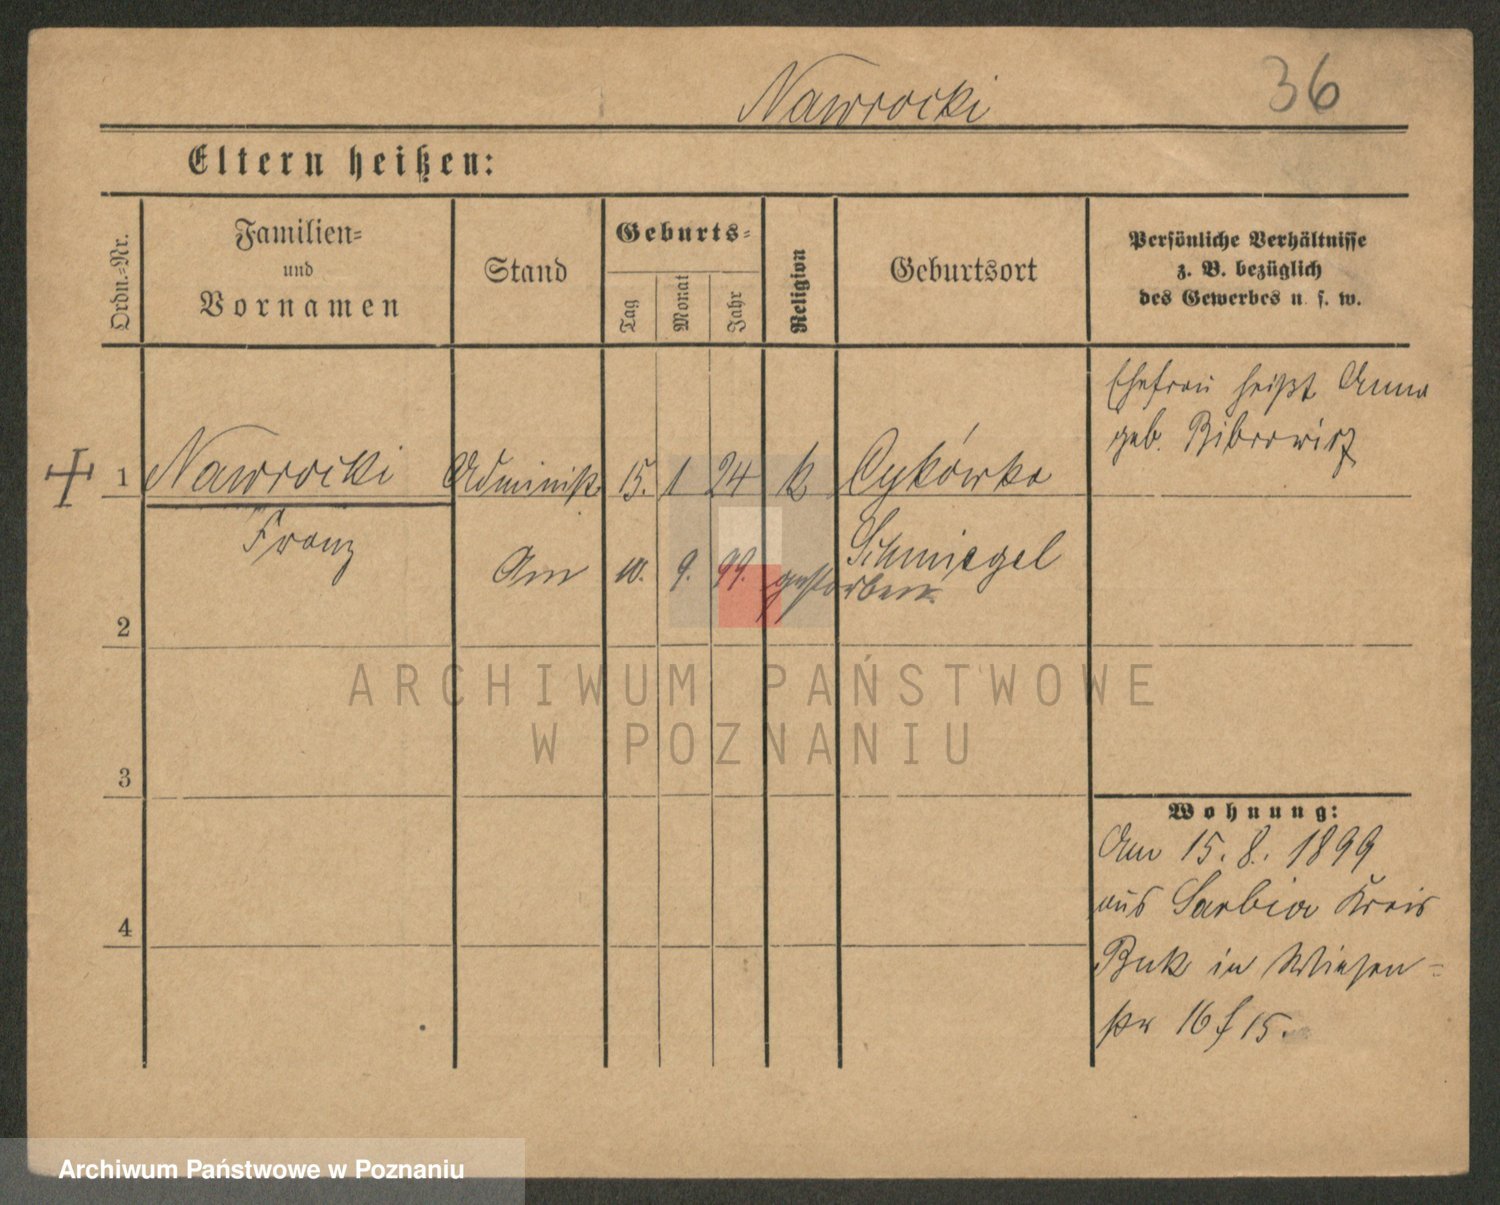 Nawrocki
36
Eltern heißen:
Ordn.-Nr.
Familien-
und
Vornamen
Stand
Geburts-
Tag
Monat
Jahr
Religion
Geburtsort
Persönliche Verhältnisse
z. B. bezüglich
des Gewerbes u. s. w.
Ehefrau heißt Anna
geb.
1 Nawrocki Administr. 15. 1 24 k Cykówko
Franz
Schmiegel
Am 10. 9. 99. gestorben.
2
3
4
Wohnung:
Am 15. 8. 1899
aus Sarbia Kreis
Buk in Wiesen-
str 16 f 15.
ARCHIWUM PAŃSTWOWE
W POZNANIU
Archiwum Państwowe w Poznaniu